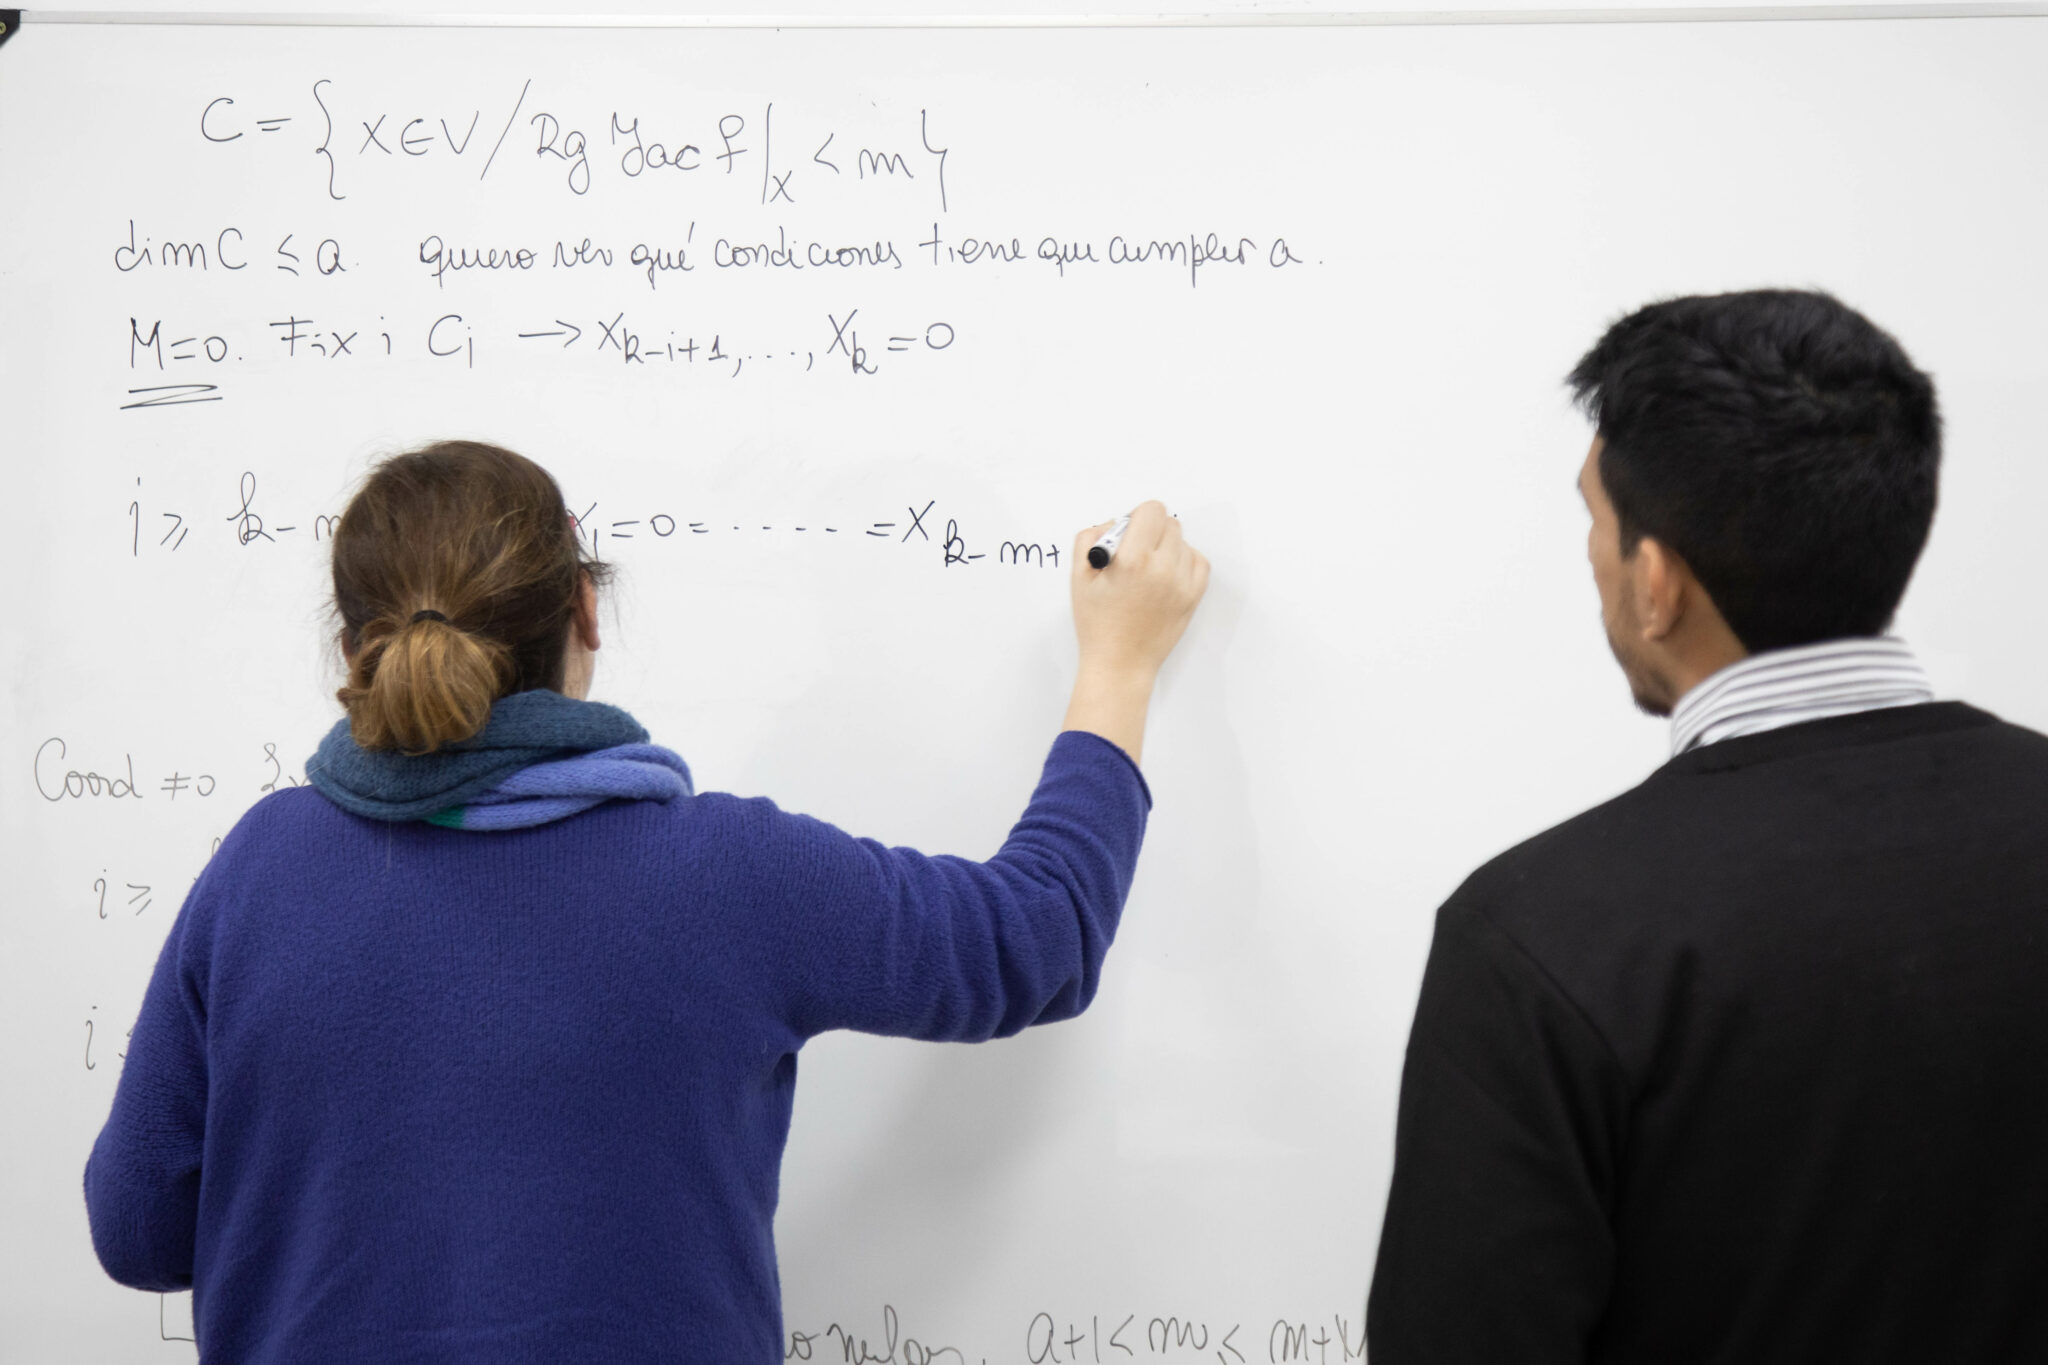 C = { x ∈ V / Rg Jac f |x < m }
dim C ≤ a. quiero ver qué condiciones tiene que cumplir a.
M=0. Fix i Ci → Xk-i+1, ..., Xk = 0
i ≥ k-m X1 = 0 = ..... = X k-m+
Coord ≠ 0 {x
i ≥
i ≤
a+1 <